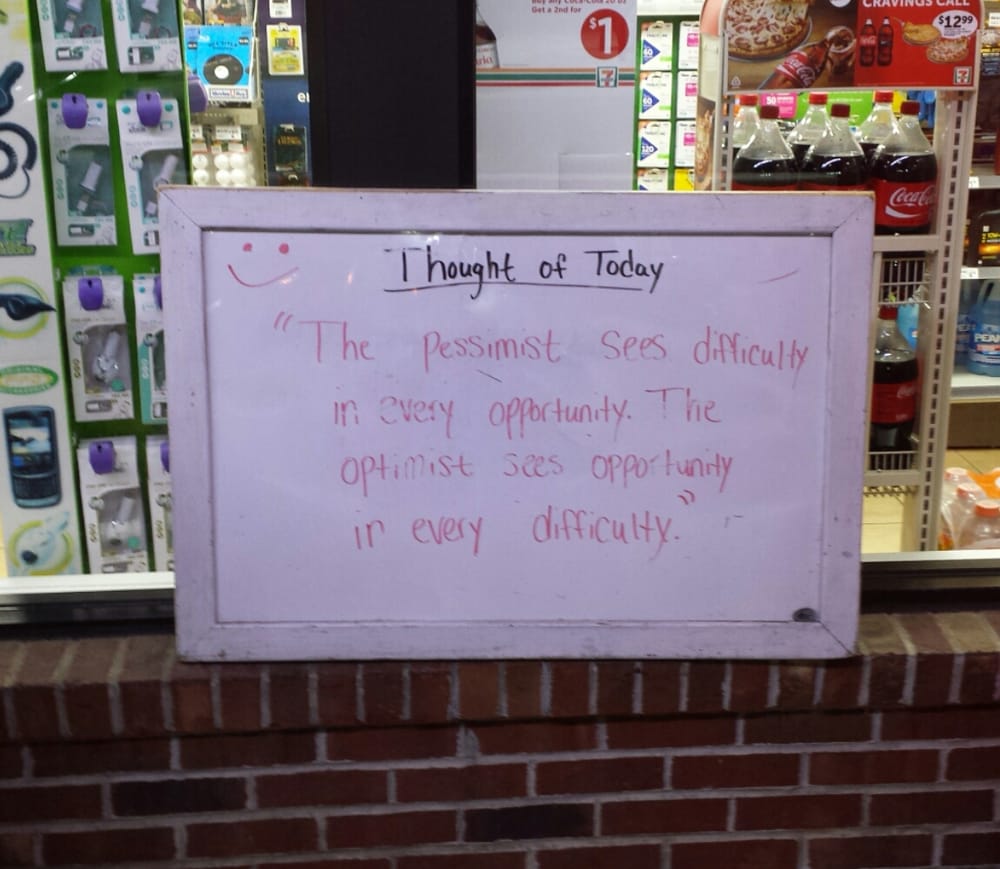 Buy any Coca-Cola 20 oz
Get a 2nd for
$1
CRAVINGS CALL
$12.99
Coca-Cola
Thought of Today
"The pessimist sees difficulty
in every opportunity. The
optimist sees opportunity
in every difficulty."